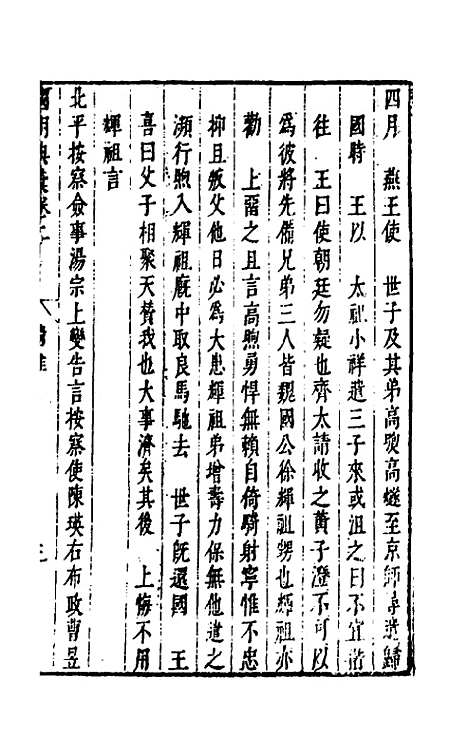 四月　燕王使　世子及其弟高煦高燧至京師尋遣歸
國時　王以　太祖小祥遣三子來或沮之曰不宜偕
往　王曰使朝廷勿疑也齊太請收之黄子澄不可以
爲彼將先備兄弟三人皆魏國公徐輝祖甥也輝祖亦
勸　上畱之且言高煦勇悍無賴自倚騎射寧惟不忠
抑且叛父他日必爲大患輝祖弟增壽力保無他遣之
瀕行煦入輝祖廐中取良馬馳去　世子旣還國　王
喜曰父子相聚天贊我也大事濟矣其後　上悔不用
輝祖言
北平按察僉事湯宗上變告言按察使陳瑛右布政曹昱